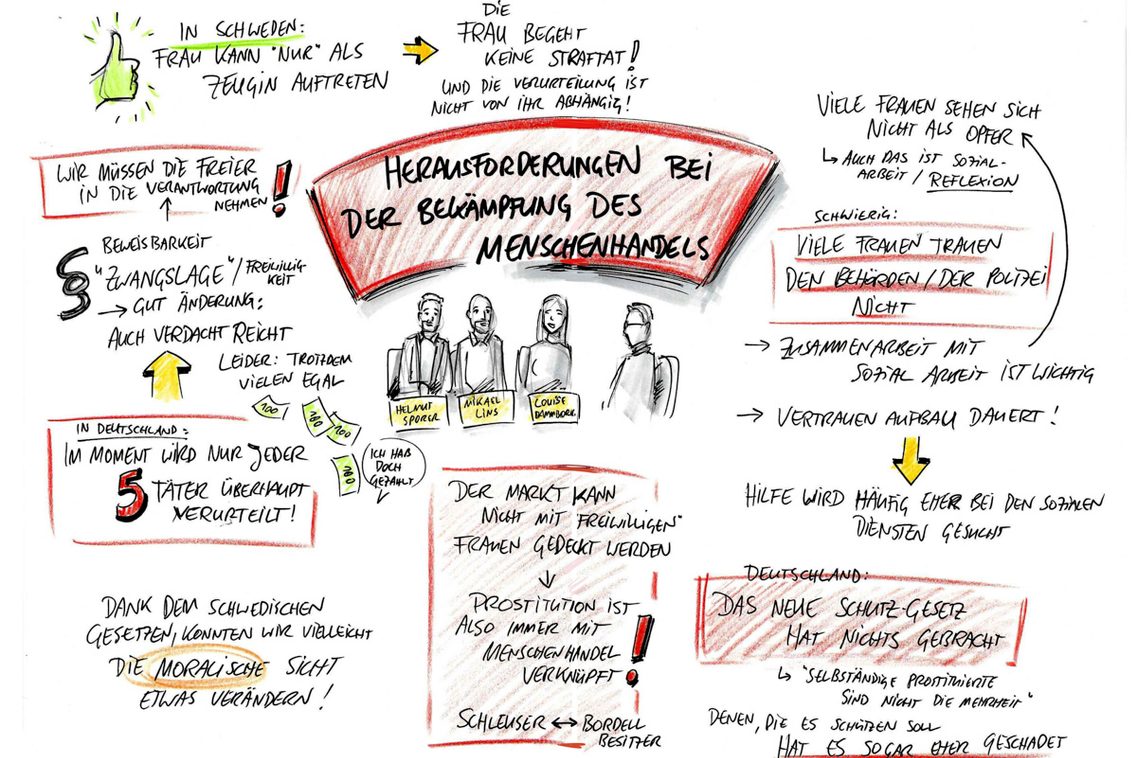 IN SCHWEDEN:
FRAU KANN "NUR" ALS
ZEUGIN AUFTRETEN
DIE
FRAU BEGEHT
KEINE STRAFTAT!
UND DIE VERURTEILUNG IST
NICHT VON IHR ABHÄNGIG!
HERAUSFORDERUNGEN BEI
DER BEKÄMPFUNG DES
MENSCHENHANDELS
WIR MÜSSEN DIE FREIER
IN DIE VERANTWORTUNG
NEHMEN!
§ BEWEISBARKEIT
"ZWANGSLAGE"/FREIWILLIG
KEIT
→ GUT ÄNDERUNG:
AUCH VERDACHT REICHT
LEIDER: TROTZDEM
VIELEN EGAL
100
100
100
100
ICH HAB
DOCH
GEZAHLT
IN DEUTSCHLAND:
IM MOMENT WIRD NUR JEDER
5 TÄTER ÜBERHAUPT
VERURTEILT!
DANK DEM SCHWEDISCHEN
GESETZEN, KONNTEN WIR VIELLEICHT
DIE MORALISCHE SICHT
ETWAS VERÄNDERN!
HELMUT
SPORER
MIKAEL
LINS
LOUISE
DER MARKT KANN
NICHT MIT FREIWILLIGEN"
FRAUEN GEDECKT WERDEN
↓
PROSTITUTION IST
ALSO IMMER MIT
MENSCHENHANDEL
VERKNÜPFT!
SCHLEUSER ↔ BORDELL
BESITZER
VIELE FRAUEN SEHEN SICH
NICHT ALS OPFER
↳ AUCH DAS IST SOZIAL-
ARBEIT / REFLEXION
SCHWIERIG:
VIELE FRAUEN TRAUEN
DEN BEHÖRDEN/DER POLIZEI
NICHT
→ ZUSAMMENARBEIT MIT
SOZIAL ARBEIT IST WICHTIG
→ VERTRAUEN AUFBAU DAUERT!
HILFE WIRD HÄUFIG EHER BEI DEN SOZIALEN
DIENSTEN GESUCHT
DEUTSCHLAND:
DAS NEUE SCHUTZ-GESETZ
HAT NICHTS GEBRACHT
↳ "SELBSTÄNDIGE PROSTITUIERTE
SIND NICHT DIE MEHRHEIT"
DENEN, DIE ES SCHÜTZEN SOLL
HAT ES SOGAR EHER GESCHADET